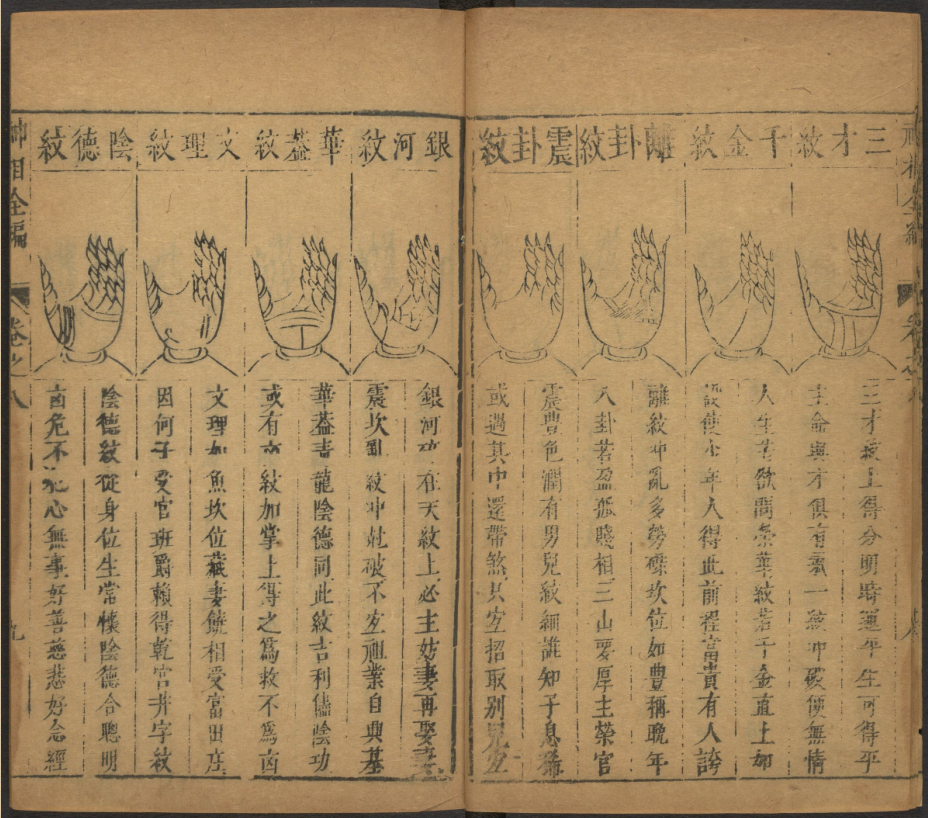 三才紋
千金紋
離卦紋
震卦紋
三才紋上得分明時運平生可得平
主命與才俱有氣一紋冲破便無情
人生若欲問榮華紋若千金直上如
設使少年人得此前程富貴有人誇
離紋冲亂多勞碌坎位如豐稱晚年
八卦若盈孤賤相三山要厚主榮官
震豐色潤有男兒紋細誰知子息
或遇其中還帶煞只宜招取別兒宜
銀河紋
華蓋紋
文理紋
陰德紋
銀河在天紋上必主妨妻再娶妻
震坎亂紋冲尅破不宜祖業自興基
華蓋青龍陰德同此紋吉利儘陰功
或有紋加掌上得之爲救不爲凶
文理如魚坎位藏妻饒相受富田庄
因何子受官班爵賴得乾宮井字紋
陰德紋從身位生常懷陰德合聰明
凶危不心無事好善慈悲好念經
神相全編
卷之八
九